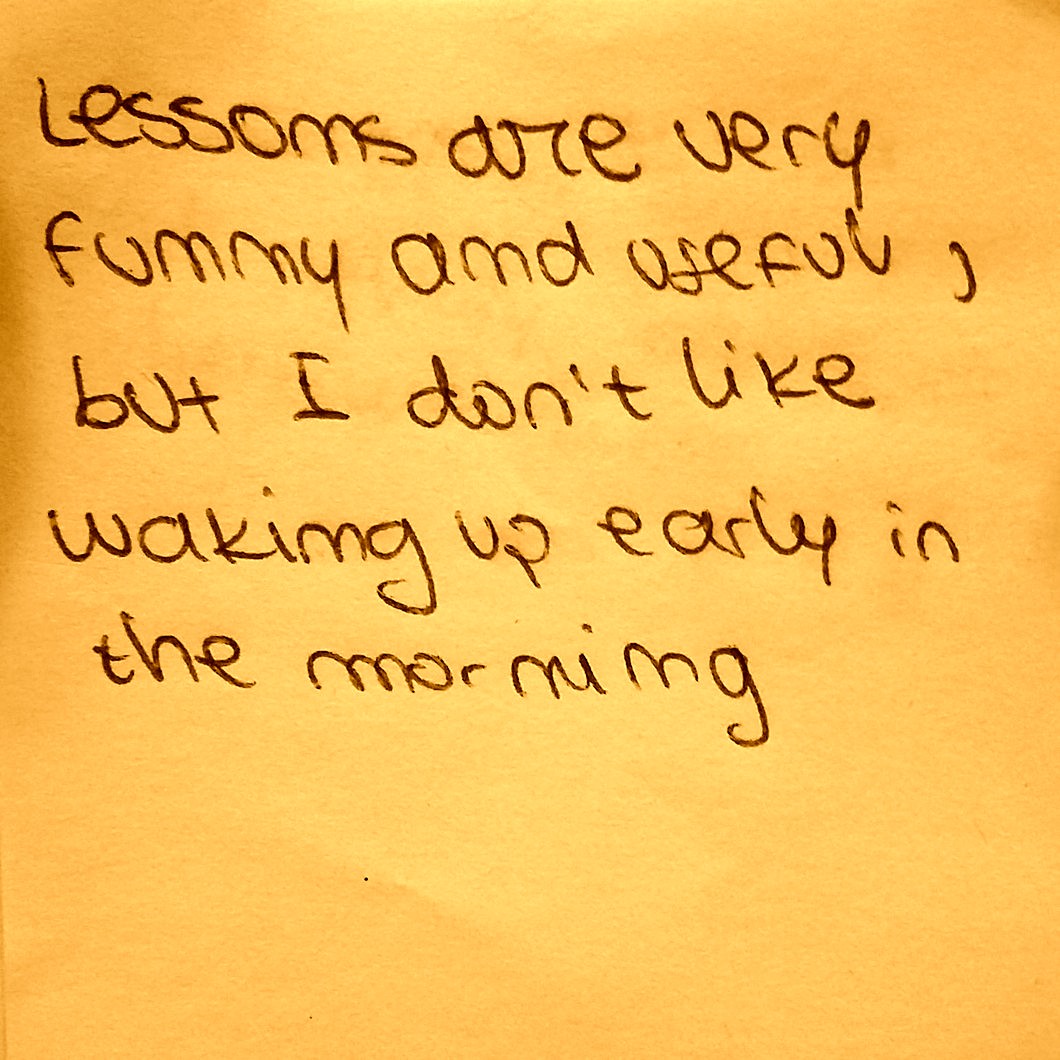 Lessons are very
funny and useful,
but I don't like
waking up early in
the morning